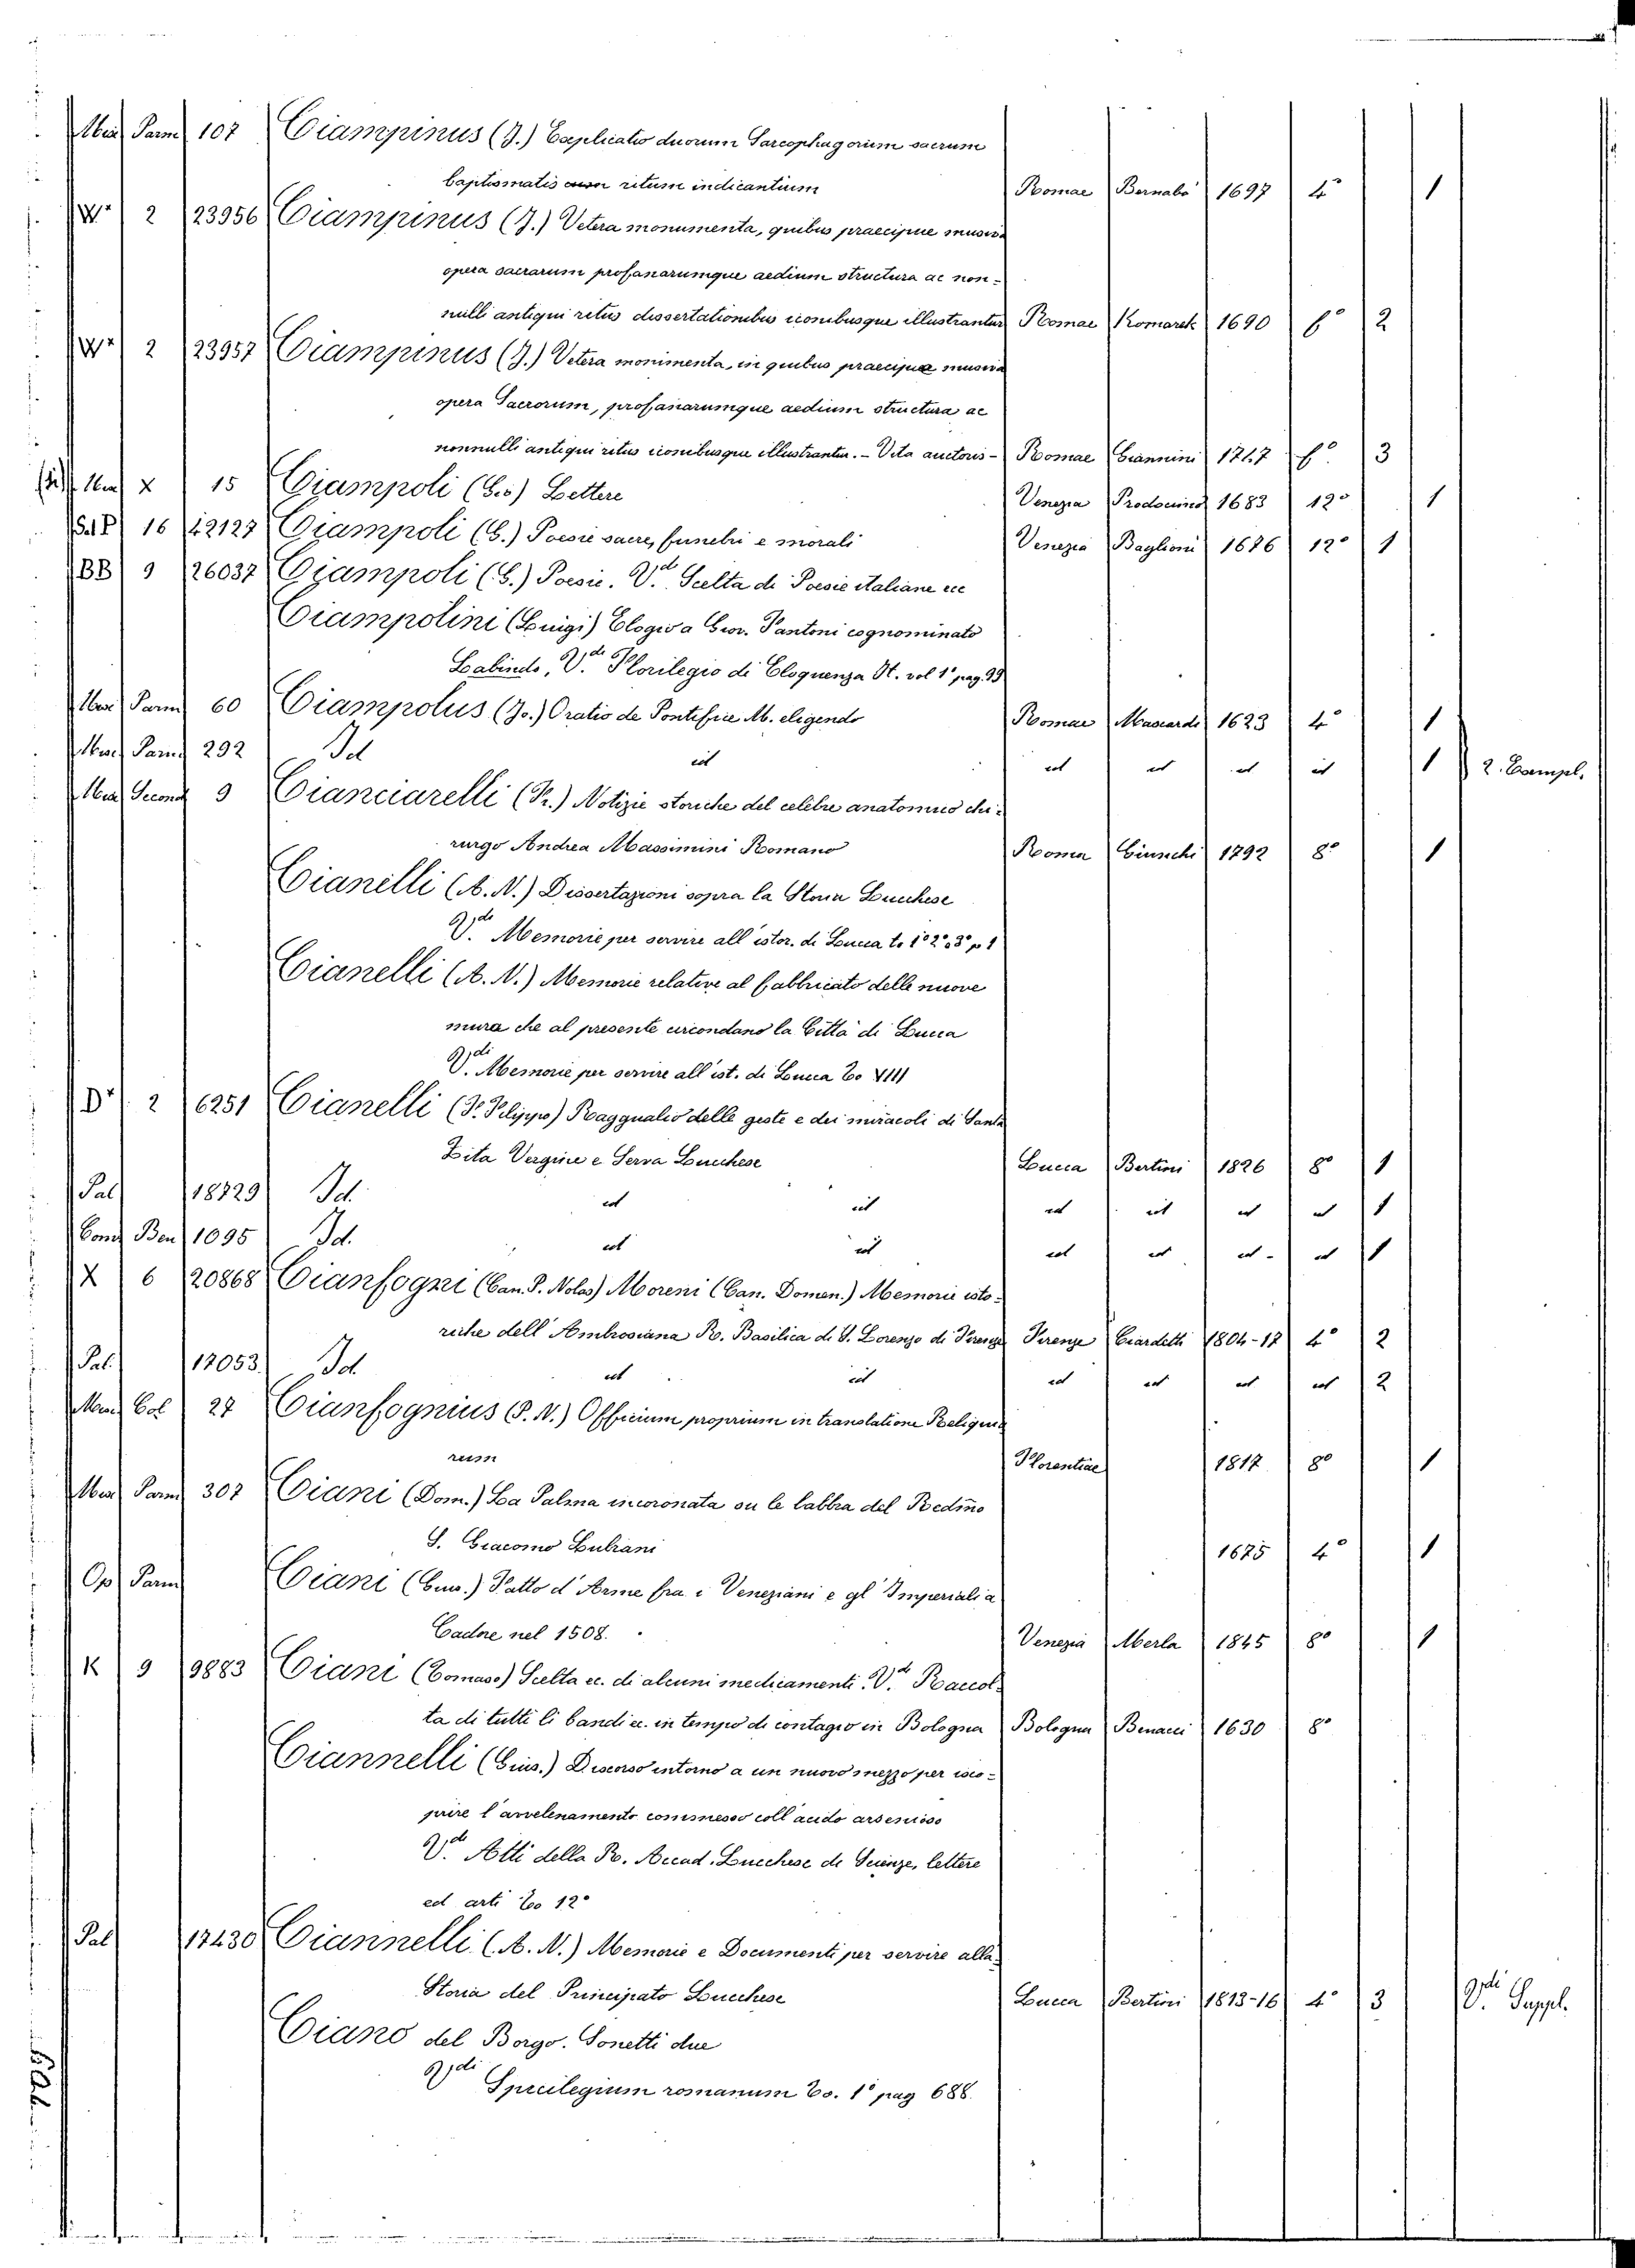 Misc Parm 107 Ciampinus (J.) Explicatio duorum Sarcophagorum sacrum
baptismatis ritum indicantium Romae Bernabo 1697 4° 1
W* 2 23956 Ciampinus (J.) Vetera monumenta, quibus praecipue musiva
opera sacrarum profanarumque aedium structura ac non-
nulli antiqui ritus dissertationibus iconibusque illustrantur Romae Komarek 1690 f° 2
W* 2 23957 Ciampinus (J.) Vetera monimenta, in quibus praecipua musiva
opera Sacrorum, profanarumque aedium structura ac
nonnulli antiqui ritus iconibusque illustrantur. - Vita auctoris - Romae Giannini 1747 f° 3
X 15 Ciampoli (Gio) Lettere Venezia Prodocimo 1683 12° 1
Sal P 16 42127 Ciampoli (G.) Poesie sacre, funebri e morali Venezia Baglioni 1676 12° 1
BB 9 26037 Ciampoli (G.) Poesie. V.di Scelta di Poesie italiane ecc
Ciampolini (Luigi) Elogio a Giov. Fantoni cognominato
Labindo, V.di Florilegio di Eloquenza It. vol 1° pag. 93
Misc Parm 60 Ciampolus (Jo.) Oratio de Pontifice M. eligendo Romae Mascardi 1623 4° 1
Misc Parm 292 Id id id id id id 1 2. Exempl.
Misc Second 9 Cianciarelli (Fr.) Notizie storiche del celebre anatomico chi-
rurgo Andrea Massimini Romano Roma Giunchi 1792 8° 1
Cianelli (A. N.) Dissertazioni sopra la Storia Lucchese
V.de Memorie per servire all istor. di Lucca to 1° 2° 3° p 1
Cianelli (A. N.) Memorie relative al fabbricato delle nuove
mura che al presente circondano la Città di Lucca
V.di Memorie per servire all ist. di Lucca To VIII
D* 2 6251 Cianelli (P. Filippo) Ragguaglio delle geste e dei miracoli di Santa
Zita Vergine e Serva Lucchese Lucca Bertini 1826 8° 1
Pal 18729 Id. id id id id id id 1
Com Ben 1095 Id. id id id id id - id 1
X 6 20868 Cianfogni (Can. P. Nolas) Moreni (Can. Domen.) Memorie isto-
riche dell' Ambrosiana R. Basilica di S. Lorenzo di Firenze Firenze Ciardetti 1804-17 4° 2
Pal. 17053 Id id id id id id id 2
Misc Col 27 Cianfognius (P. N.) Officium proprium in translatione Reliquia
rum Florentiae 1817 8° 1
Misc Parm 307 Ciani (Dom.) La Palma incoronata su le labbra del Redmo
S. Giacomo Luliani 1675 4° 1
Op Parm Ciani (Gius.) Fatto d'Arme fra i Veneziani e gl' Imperiali a
Cadore nel 1508. Venezia Merlo 1845 8° 1
K 9 9883 Ciani (Tomaso) Scelta ec. di alcuni medicamenti. V.de Raccol-
ta di tutti li bandi ec. in tempo di contagio in Bologna Bologna Benacci 1630 8°
Ciannelli (Gius.) Discorso intorno a un nuovo mezzo per isco-
prire l'avvelenamento commesso coll acido arsenioso
V.de Atti della R. Accad. Lucchese di Scienze, lettere
ed arti To 12°
Pal 17430 Ciannelli (A. N.) Memorie e Documenti per servire alla
Storia del Principato Lucchese Lucca Bertini 1813-16 4° 3 V.di Suppl.
Ciano del Borgo. Sonetti due
V.di Spicilegium romanum To. 1° pag 688.